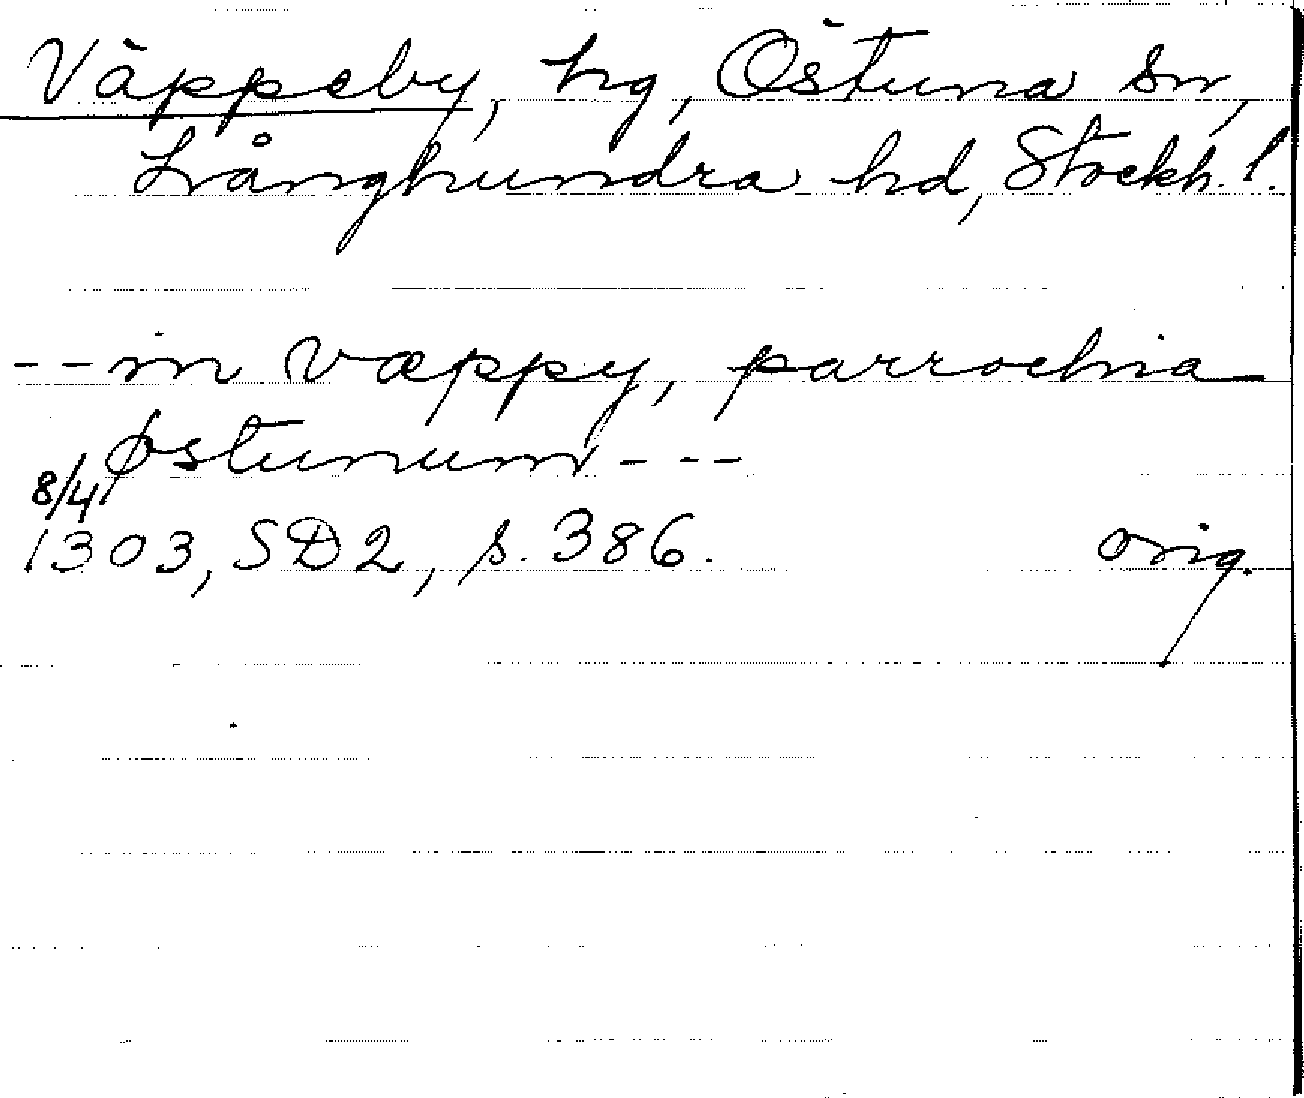 Väppeby, hg, Östuna sn,
Långhundra hd, Stockh. l.
-- in væppy, parrochia
østunum ---
8/4
1303, SD2, s. 386. orig.